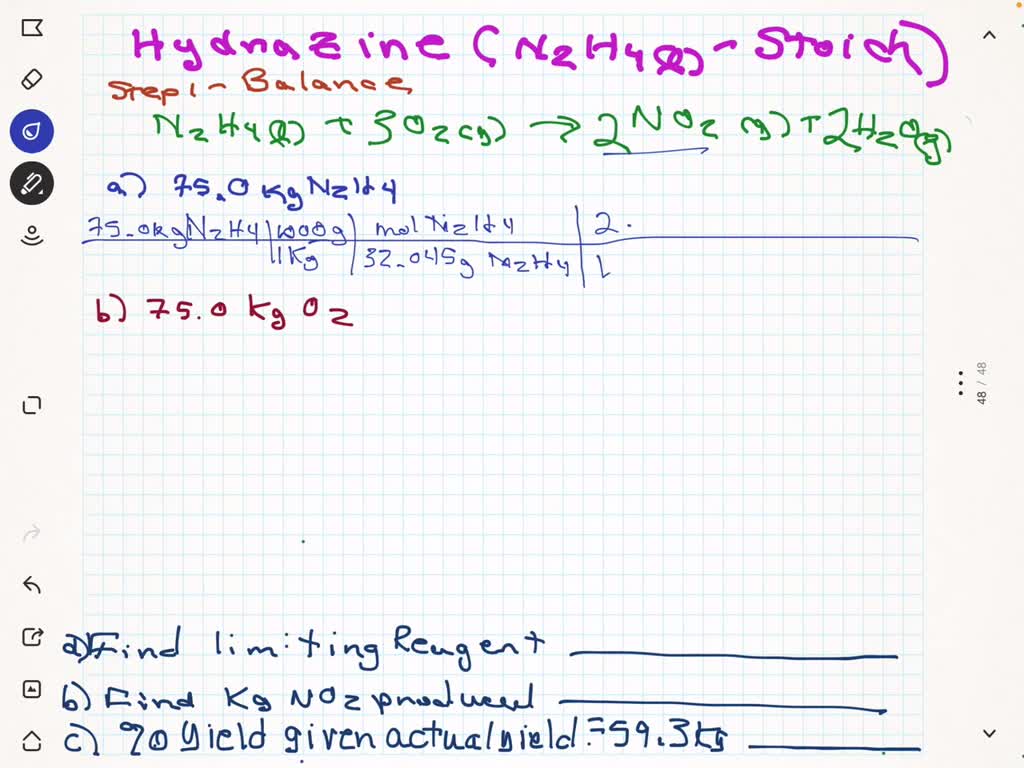 Hydrazine (N2H4(l) - Stoich)
Step 1 - Balance
N2H4(l) + 3O2(g) → 2NO2(g) + 2H2O(g)
a) 75.0 kg N2H4
75.0kg N2H4 | 1000g | mol N2H4 | 2
1Kg | 32.045g N2H4 | 1
b) 75.0 kg O2
48 / 48
a) Find limiting Reagent
b) Find Kg NO2 produced
c) % Yield given actual yield = 59.3 kg